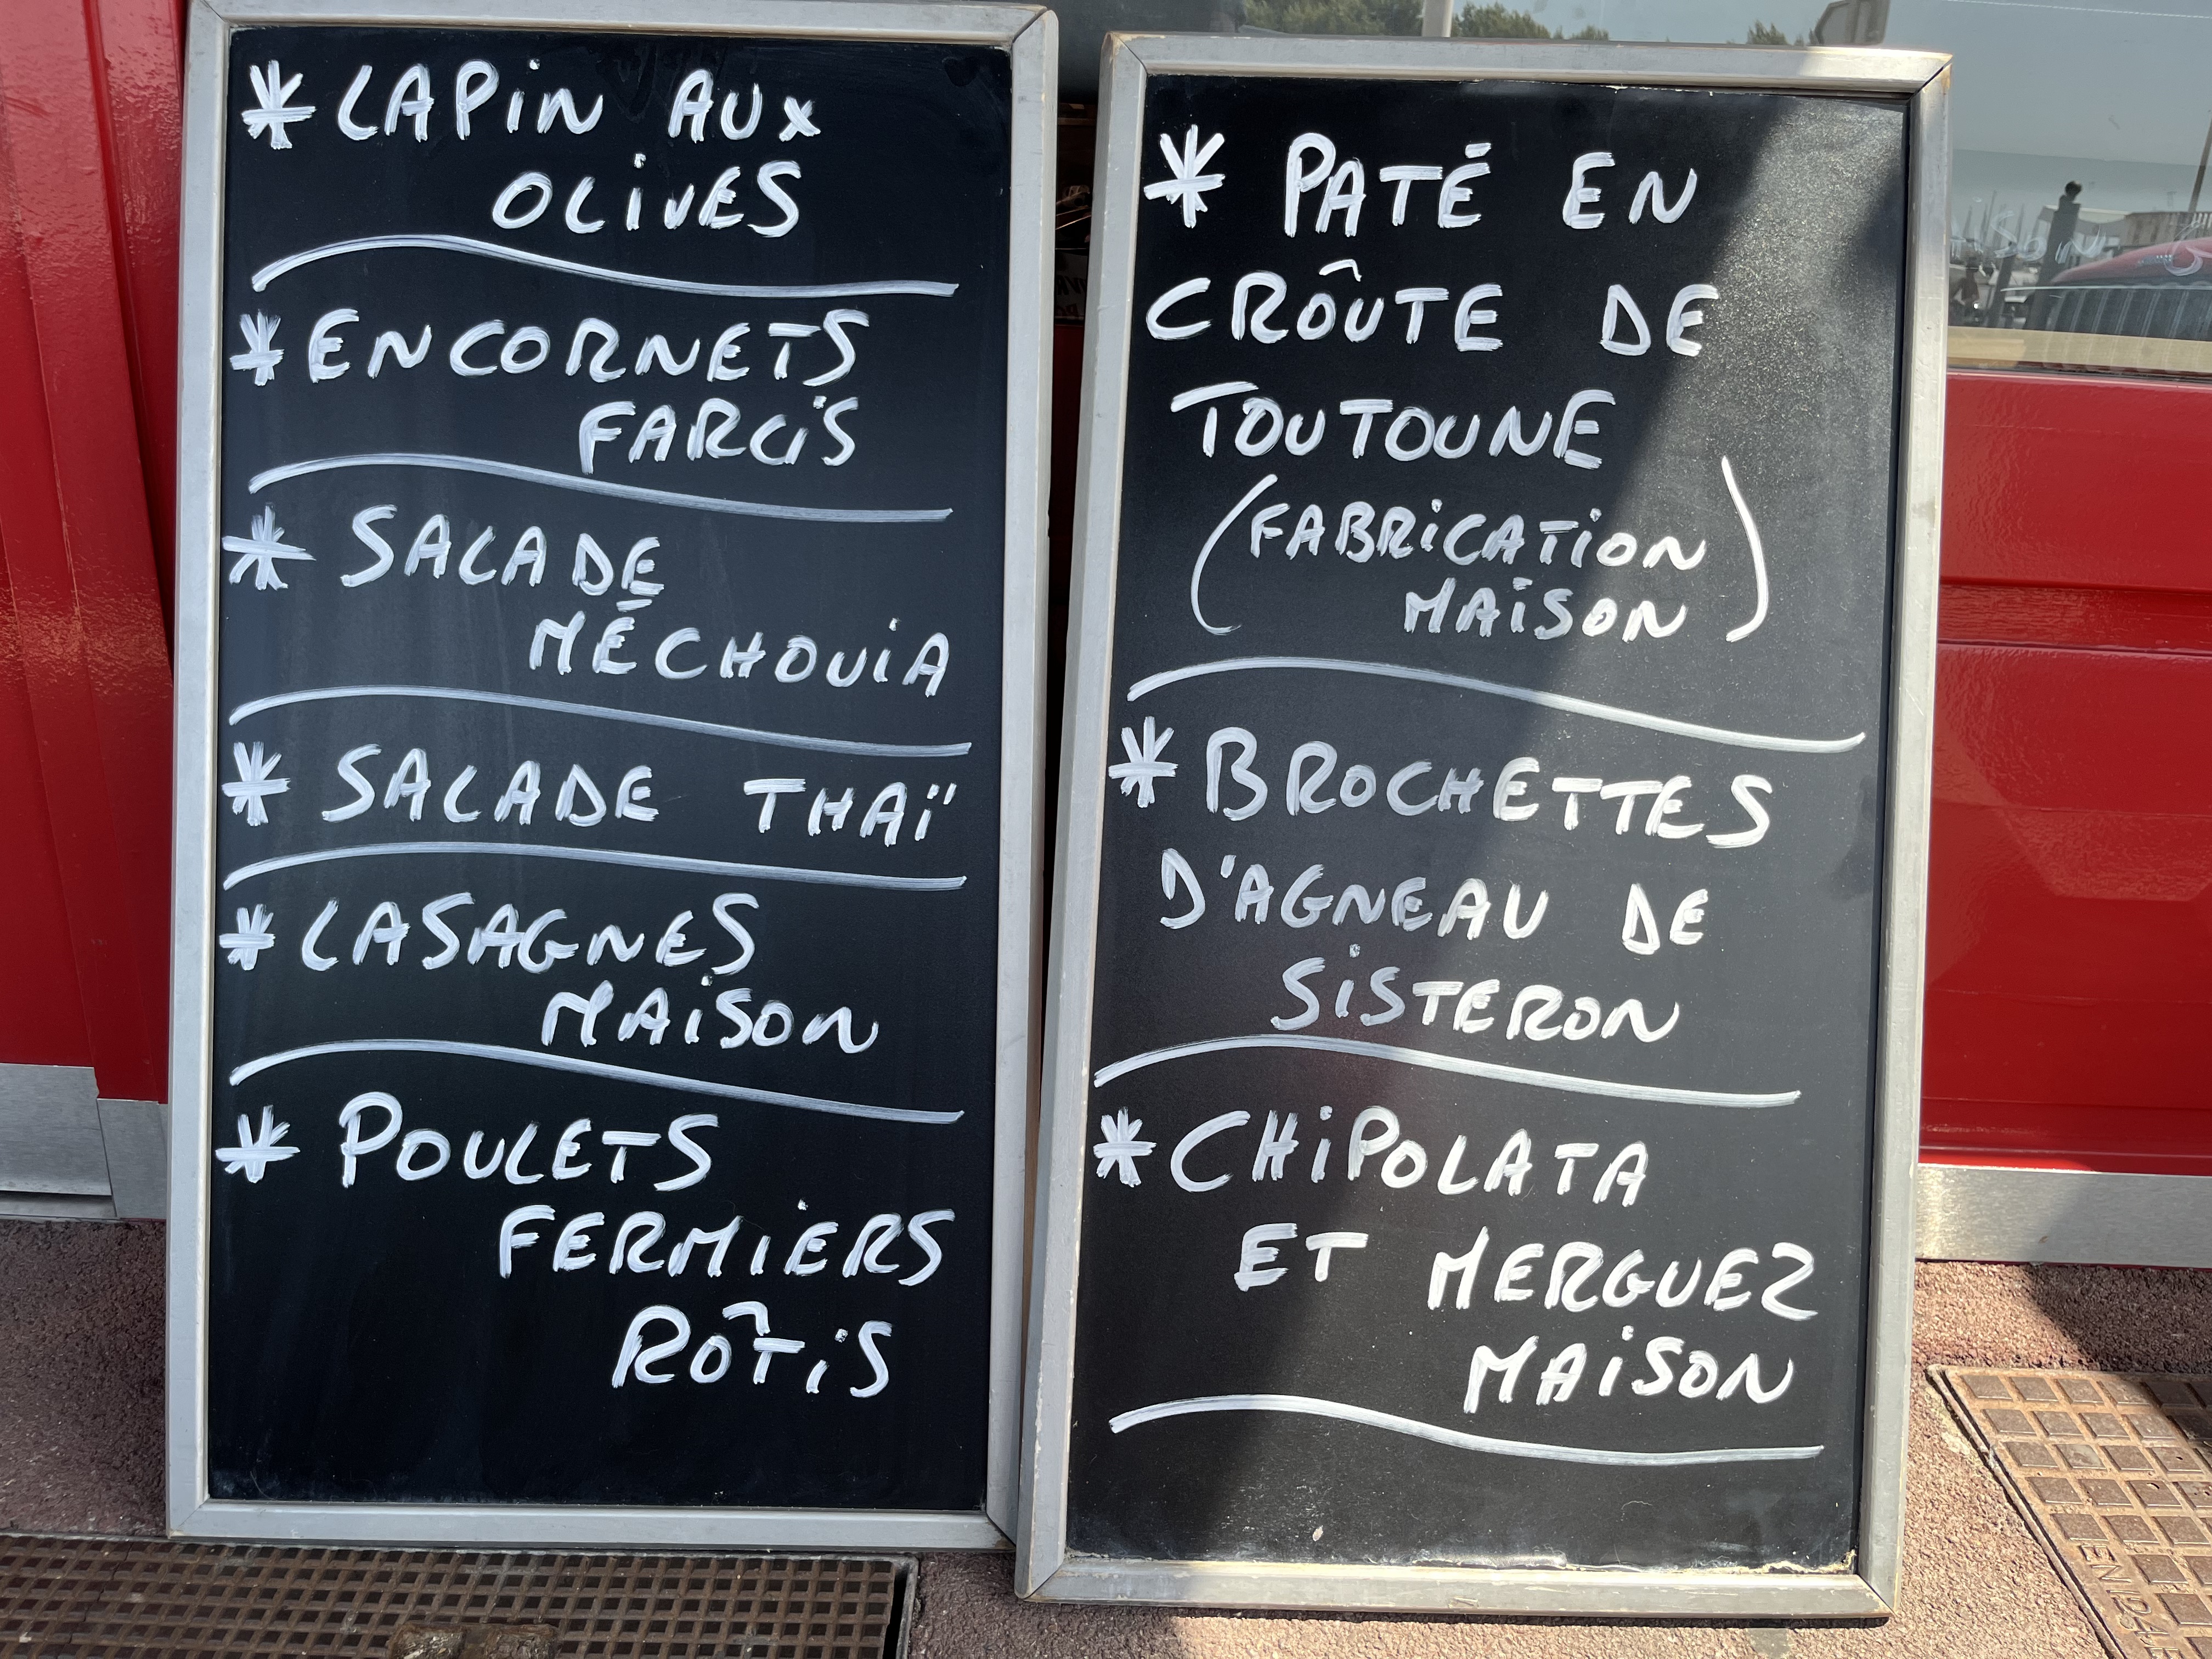 * LAPIN AUX
OLIVES
* ENCORNETS
FARCIS
* SALADE
MÉCHOUIA
* SALADE THAÏ
* LASAGNES
MAISON
* POULETS
FERMIERS
RÔTIS
* PATÉ EN
CROÛTE DE
TOUTOUNE
(FABRICATION
MAISON)
* BROCHETTES
D'AGNEAU DE
SISTERON
* CHIPOLATA
ET MERGUEZ
MAISON